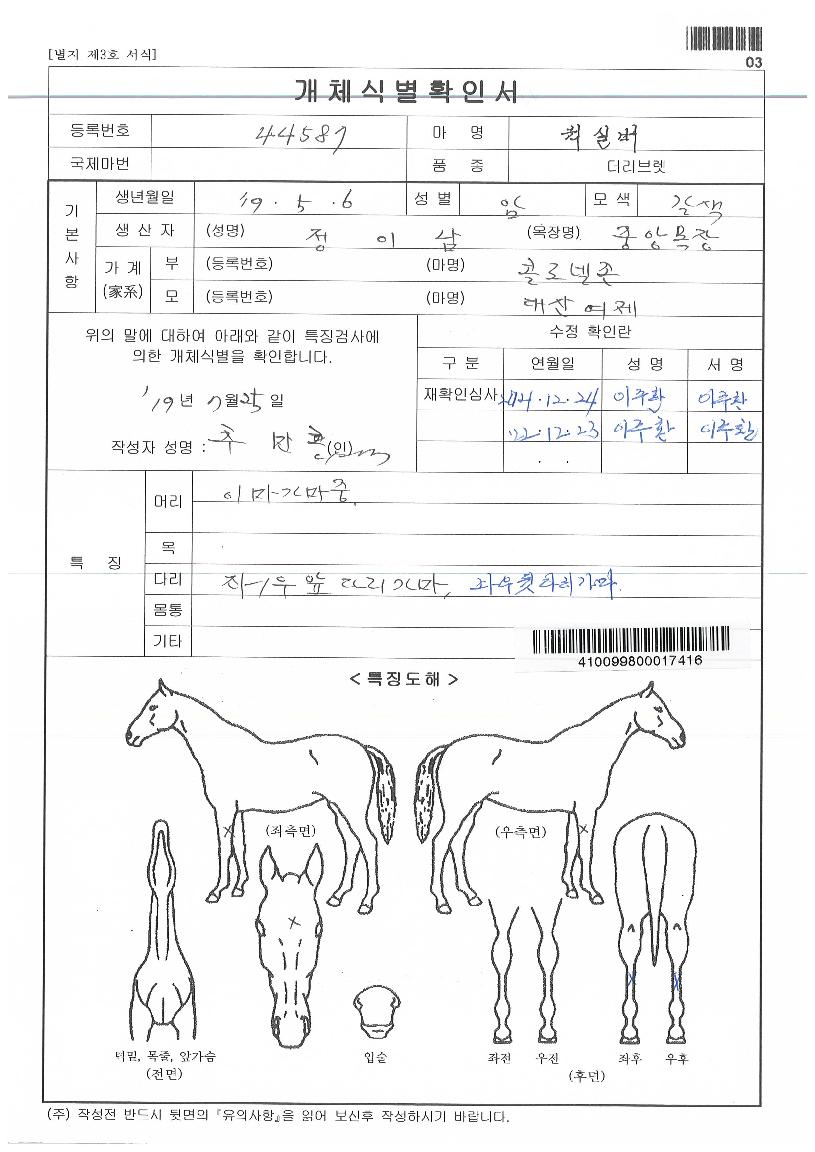 [별지 제3호 서식]
03
개체식별확인서
등록번호 44587 마 명
국제마번 품 종 더러브렛
기본사항
생년월일 '19 . 5 . 6 성별 암 모색 갈색
생 산 자 (성명) 정 이 삼 (목장명) 중앙목장
가 계 (家系) 부 (등록번호) (마명) 콜로넬존
모 (등록번호) (마명) 대찬여제
위의 말에 대하여 아래와 같이 특징검사에
의한 개체식별을 확인합니다.
'19년 7월25일
작성자 성명 : (인)
수정 확인란
구 분 연월일 성 명 서 명
재확인심사 21.12.24 이주환 이주환
22.12.23 이주환 이주환
. .
특 징
머리 이마가마중.
목
다리 좌·우앞다리가마, 좌우뒷다리가마.
몸통
기타
410099800017416
< 특징도해 >
(좌측면) (우측면)
너밑, 목줄, 앞가슴
(전면)
입술
좌전 우전 좌후 우후
(후면)
(주) 작성전 반드시 뒷면의 『유의사항』을 읽어 보신후 작성하시기 바랍니다.